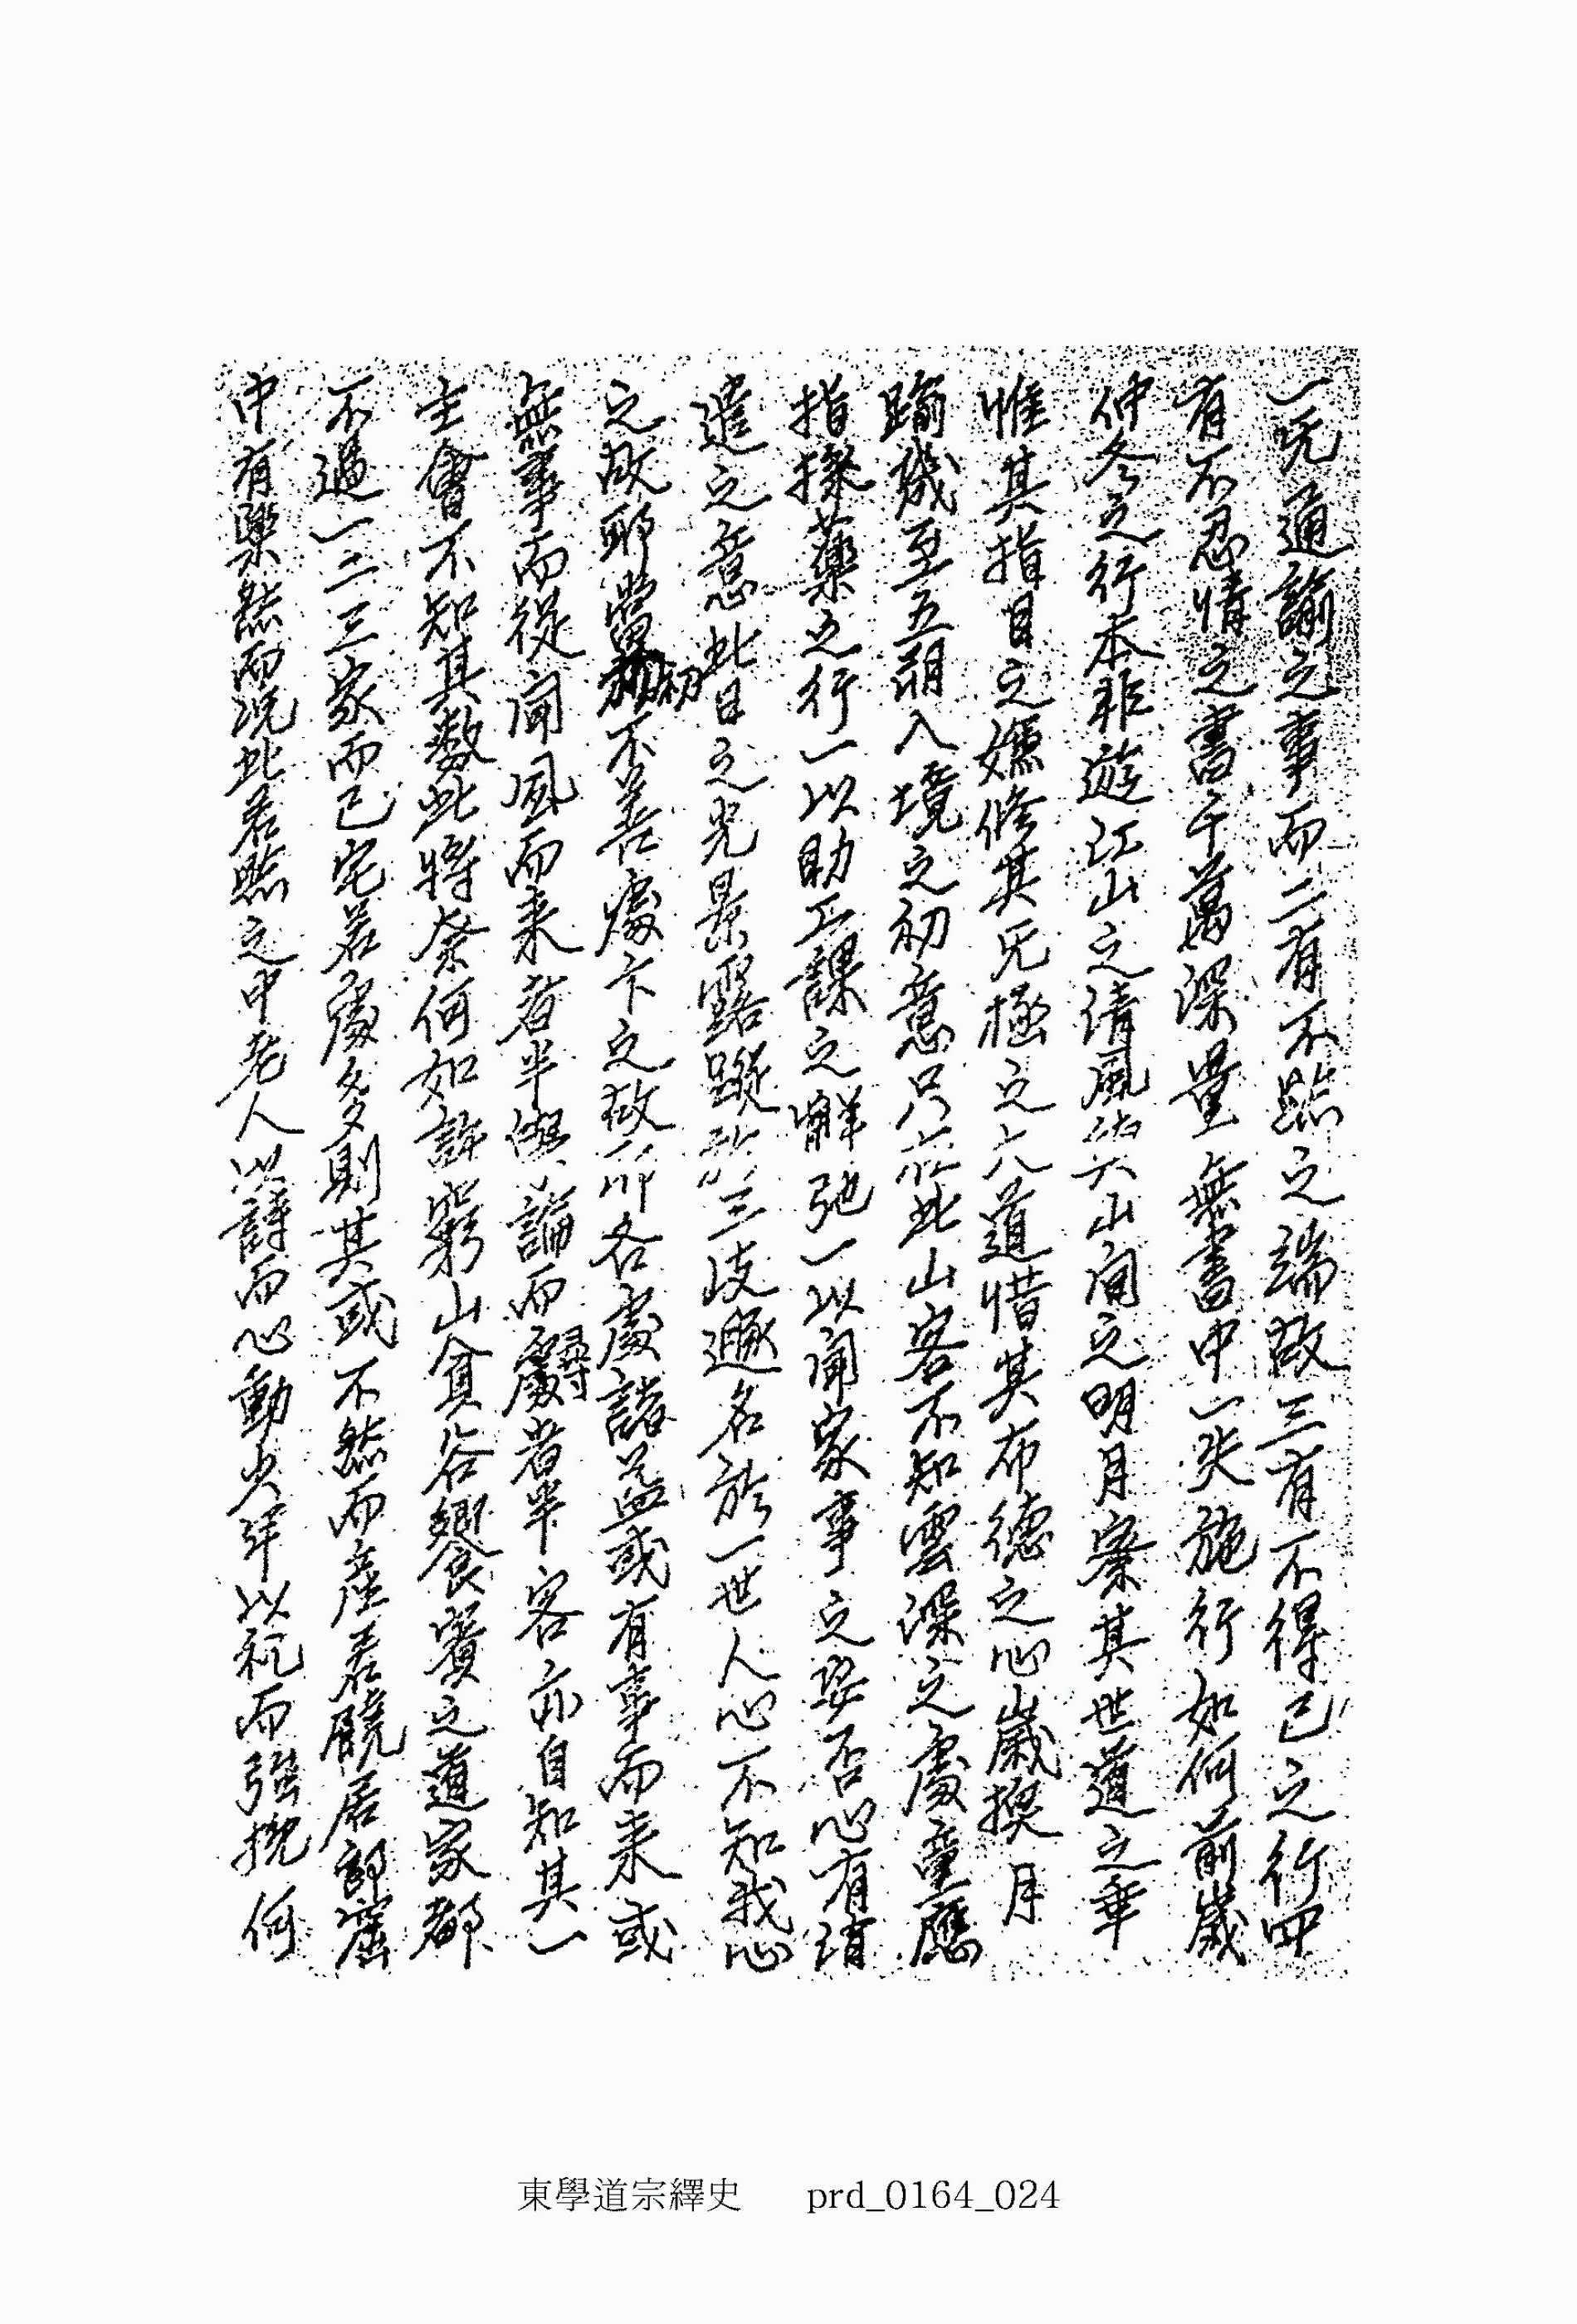 一旡通諭之事而二有不然之端故三有不得已之行四
有不忍情之書千萬深量無書中一失施行如何前歲
仲冬之行本非遊江山之淸風與山間之明月察其世道之乖
惟其指目之嫌修其旡極之大道惜其布德之心歲換月
踰幾至五朔入境之初意只在此山客不知雲深之處童應
指採藥之行一以助工課之懈弛一以聞家事之安否心有消
遣之意此日之光景露蹤於三岐遯名於一世人心不知我心
之故耶當初不善處卞之故耶各處諸益或有事而来或
無事而從聞風而来者半學論而留者半客亦自知其一
主會不知其數此將奈何如許窮山貧谷饗賓之道家都
不過一二三家而已宅若處多則其或不然而產若饒居郎窟
中有樂然而況此若然之中老人以詩而心動少年以礼而强挽何